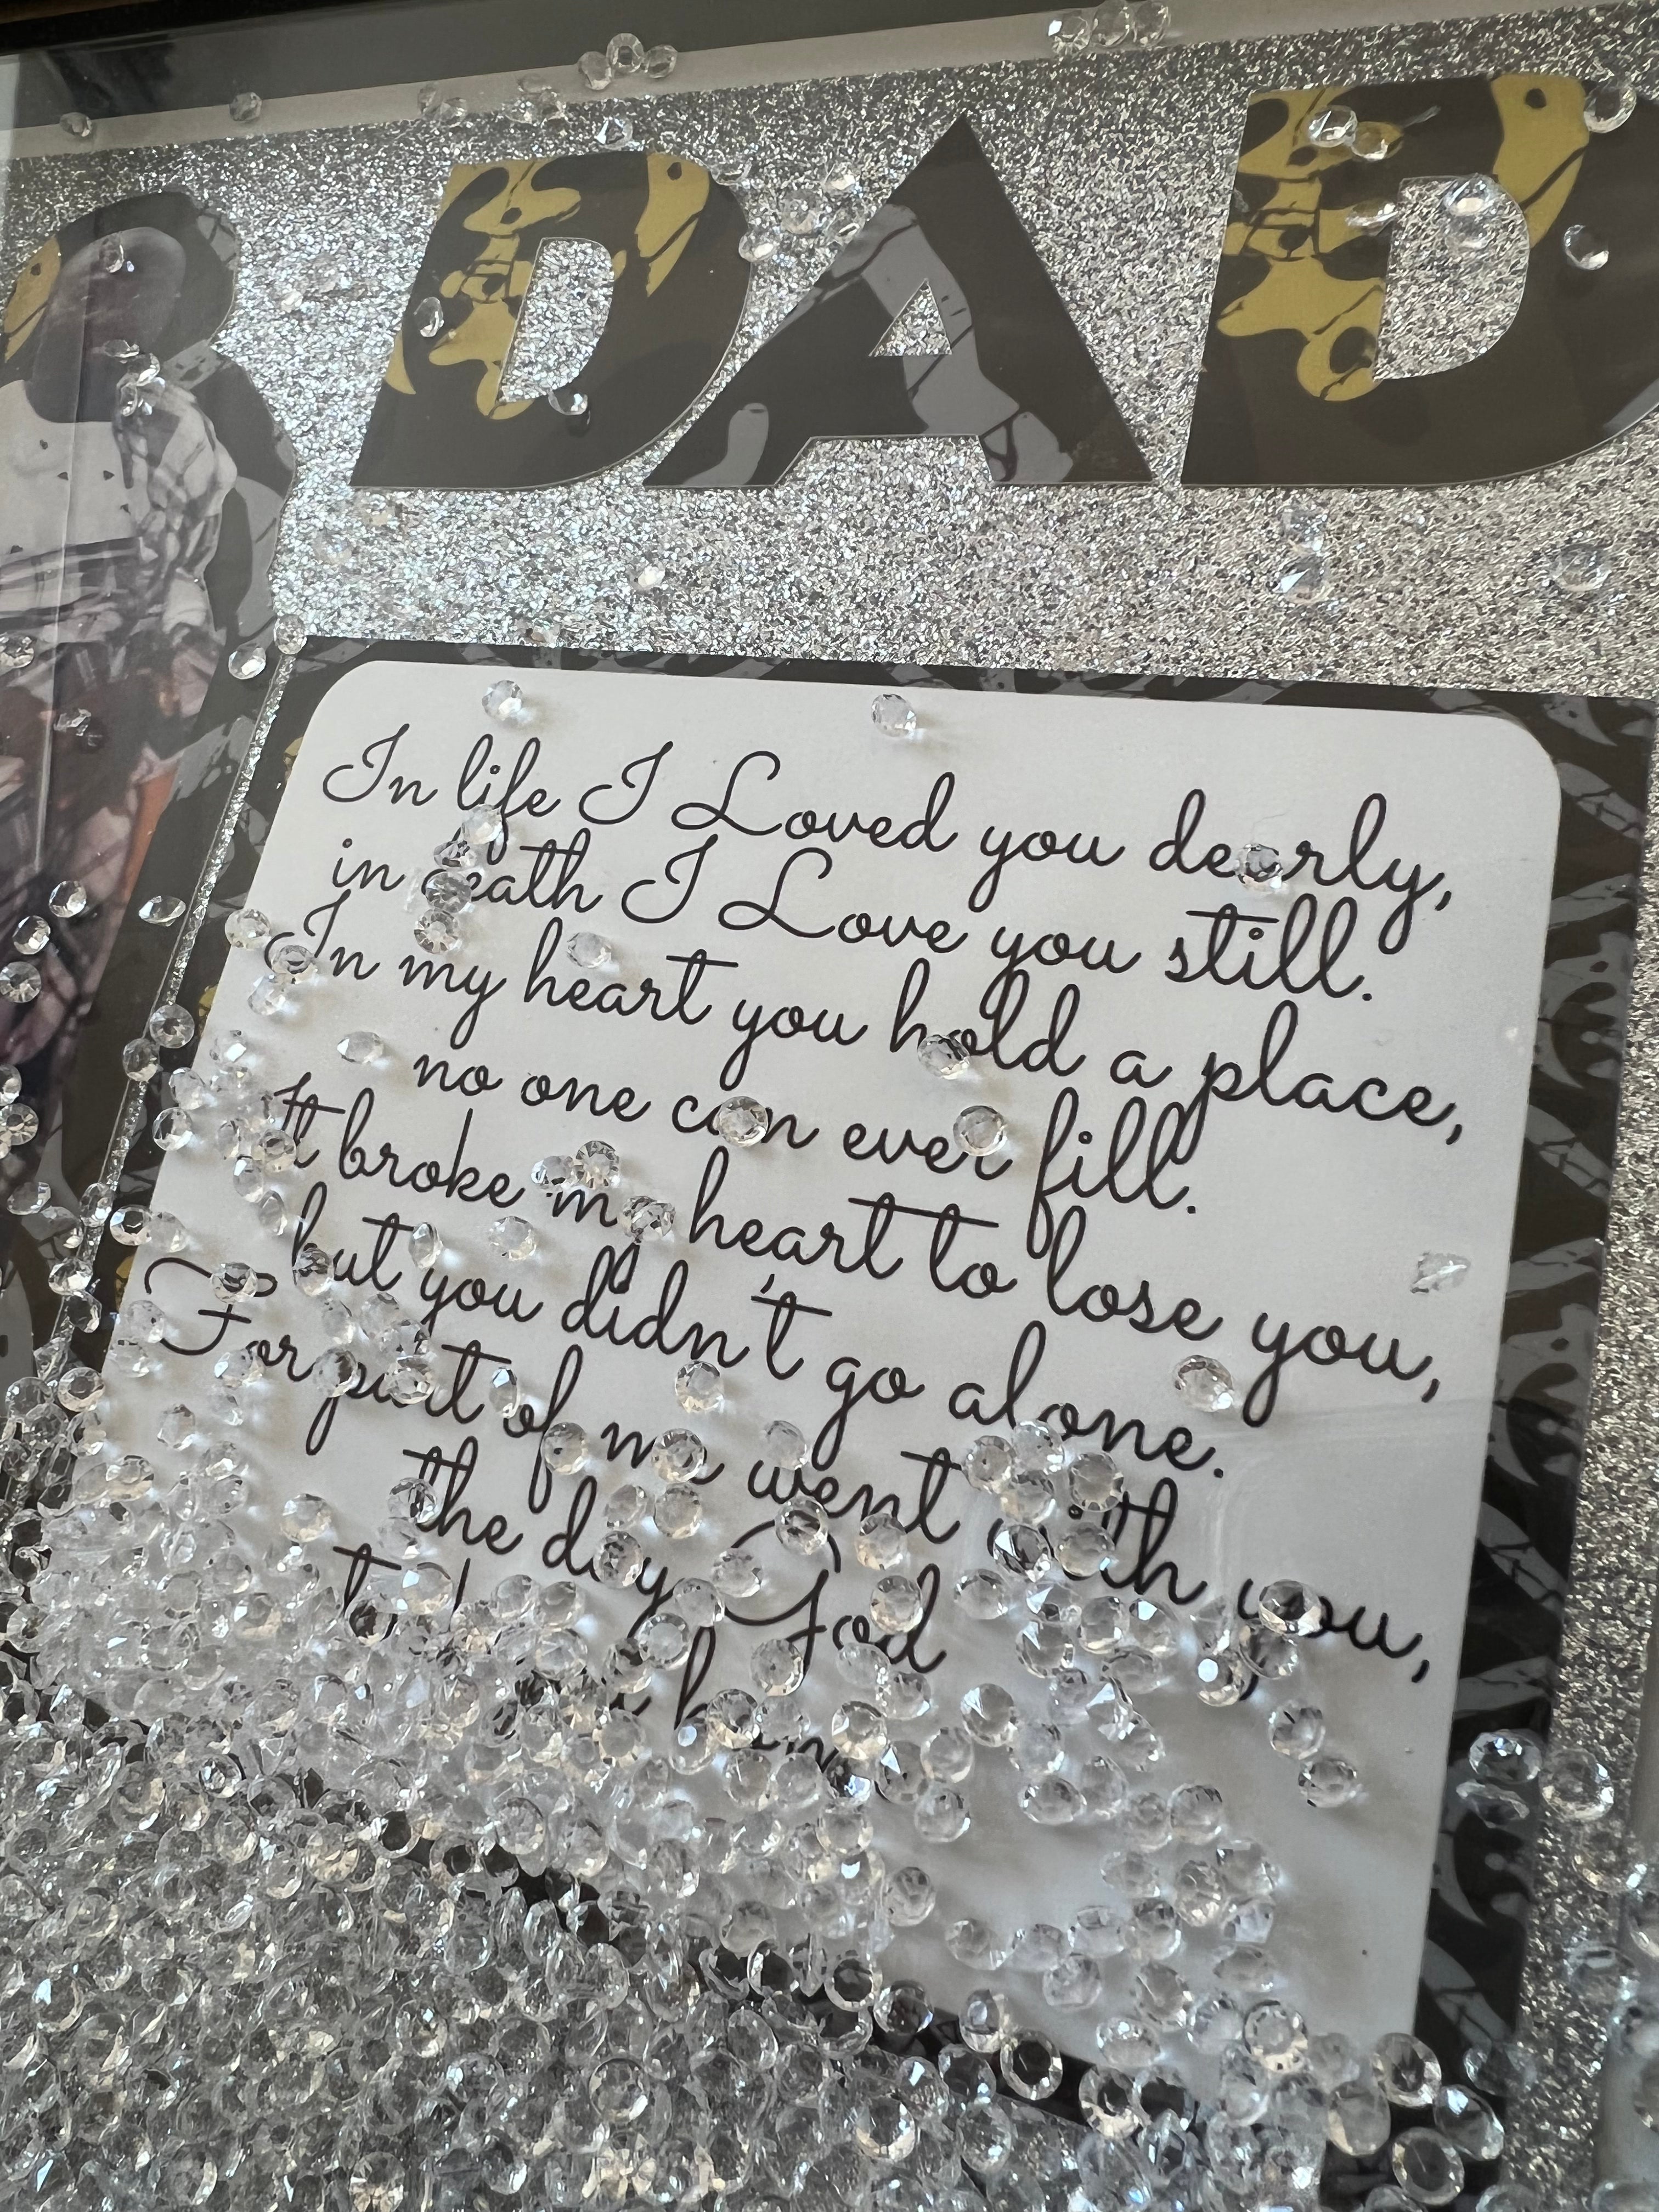 DAD
In life I Loved you dearly,
in death I Love you still.
In my heart you hold a place,
no one can ever fill.
It broke my heart to lose you,
but you didn't go alone.
For part of me went with you,
the day God